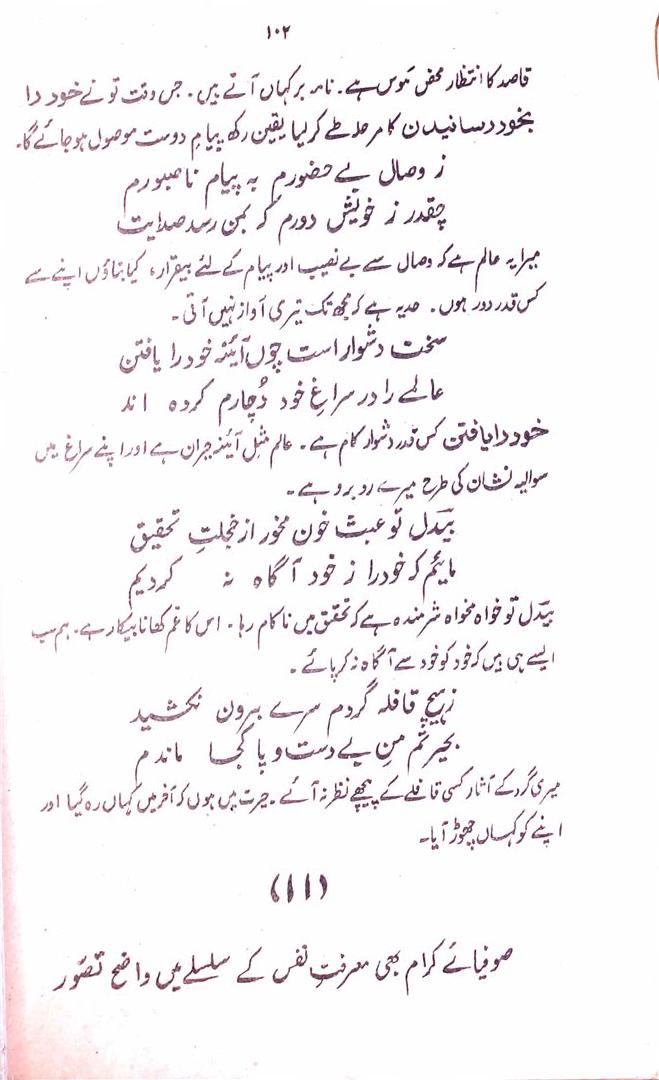 ۱۰۲
قاصد کا انتظار محض ہوس ہے۔ نامہ بر کہاں آتے ہیں۔ جس وقت تو نے خود را
بخود رسانیدن کا مرحلہ طے کر لیا یقین رکھ پیامِ دوست موصول ہو جائے گا۔
ز وصال بے حضورم بہ پیام ناصبورم
چقدر ز خویش دورم کہ بمن رسد صدایت
میرا یہ عالم ہے کہ وصال سے بے نصیب اور پیام کے لئے بیقرار، کیا بتاؤں اپنے سے
کس قدر دور ہوں۔ حد یہ ہے کہ مجھ تک تیری آواز نہیں آتی۔
سخت دشوار است چوں آئینہ خود را یافتن
عالمے را در سراغِ خود دُچارم کردہ اند
خود را یافتن کس قدر دشوار کام ہے۔ عالم مثلِ آئینہ حیران ہے اور اپنے سراغ میں
سوالیہ نشان کی طرح میرے روبرو ہے۔
بیدؔل تو عبث خون مخور از خجلتِ تحقیق
مائیم کہ خود را ز خود آگاہ نہ کردیم
بیدؔل تو خواہ مخواہ شرمندہ ہے کہ تحقیق میں ناکام رہا۔ اس کا غم کھانا بیکار ہے۔ ہم سب
ایسے ہی ہیں کہ خود کو خود سے آگاہ نہ کر پائے۔
ز ہیچ قافلہ گردم سرے بیرون نکشید
بحیرتم منِ بے دست و پا کجا ماندم
میری گرد کے آثار کسی قافلے کے پیچھے نظر نہ آئے۔ حیرت میں ہوں کہ آخر میں کہاں رہ گیا اور
اپنے کو کہاں چھوڑ آیا۔
(۱۱)
صوفیائے کرام بھی معرفتِ نفس کے سلسلے میں واضح تصوّر